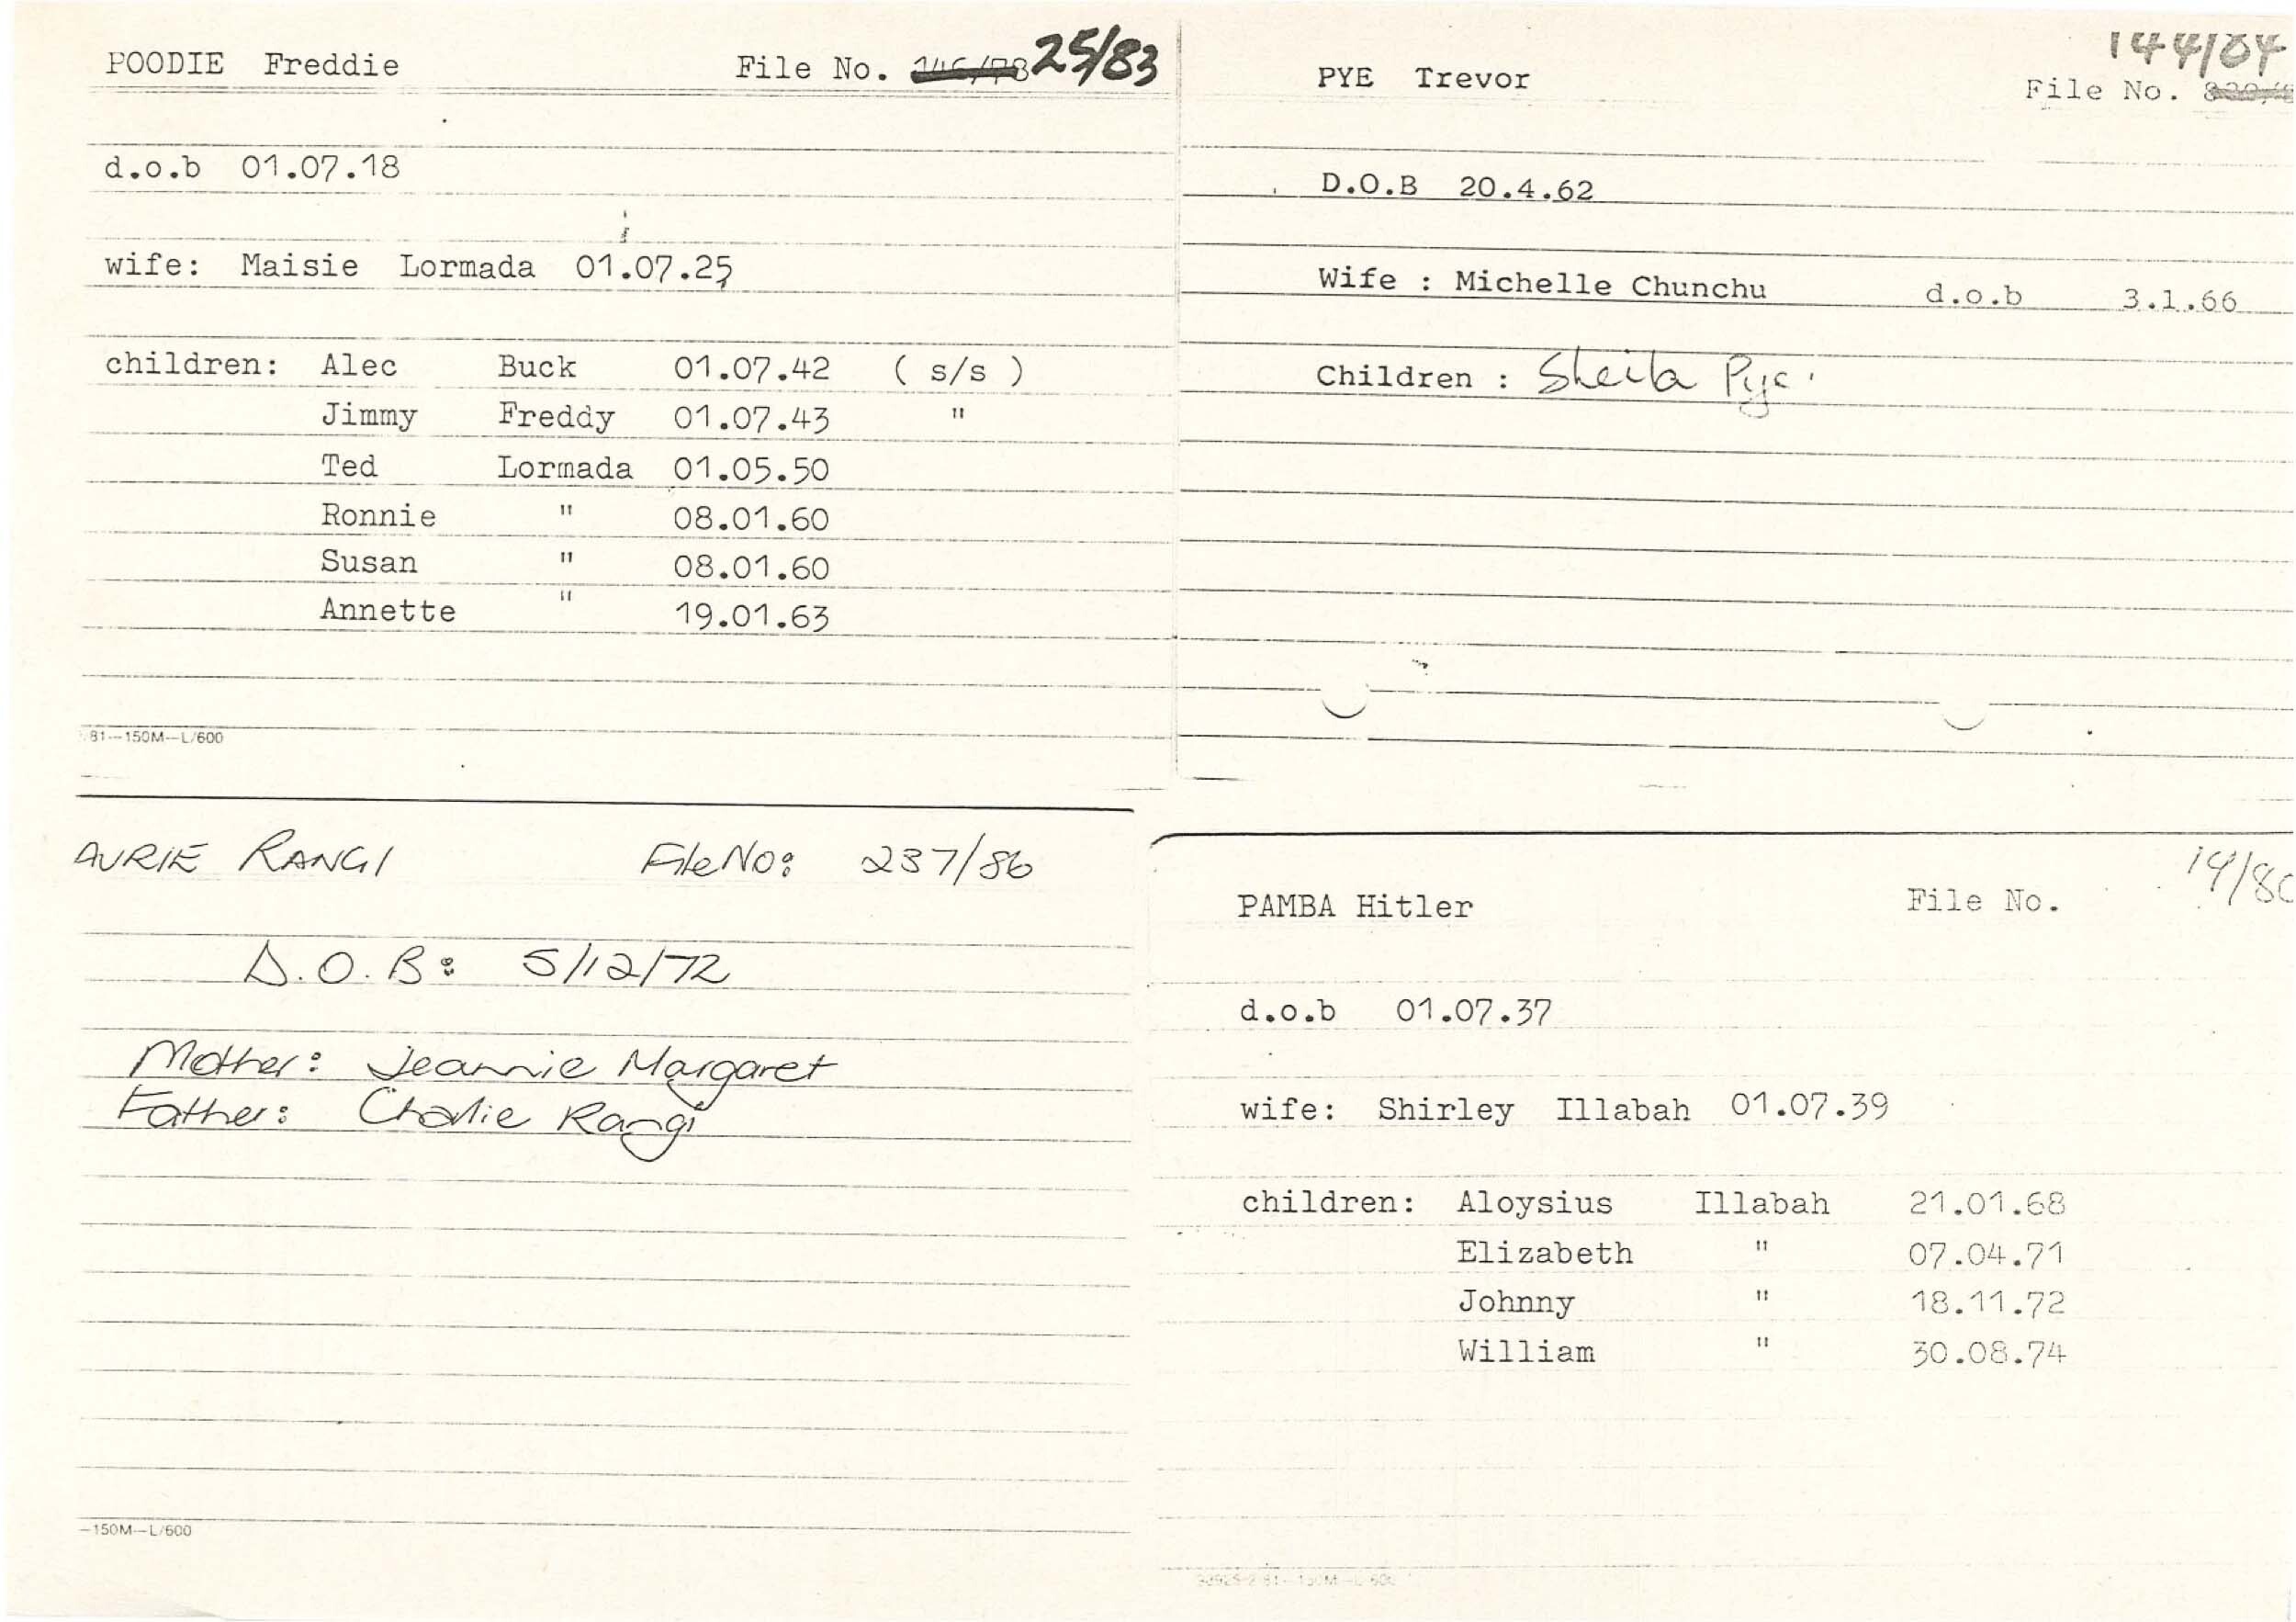 POODIE Freddie File No. 25/83
d.o.b 01.07.18
wife: Maisie Lormada 01.07.25
children: Alec Buck 01.07.42 ( s/s )
Jimmy Freddy 01.07.43 "
Ted Lormada 01.05.50
Ronnie " 08.01.60
Susan " 08.01.60
Annette " 19.01.63
81—150M—L/600
144/84
PYE Trevor File No.
D.O.B 20.4.62
Wife : Michelle Chunchu d.o.b 3.1.66
Children : Sheila Pye.
AURIE RANGI File No: 237/86
D.O.B: 5/12/72
Mother: Jeannie Margaret
Father: Charlie Rangi
—150M—L/600
PAMBA Hitler File No. 14/80
d.o.b 01.07.37
wife: Shirley Illabah 01.07.39
children: Aloysius Illabah 21.01.68
Elizabeth " 07.04.71
Johnny " 18.11.72
William " 30.08.74